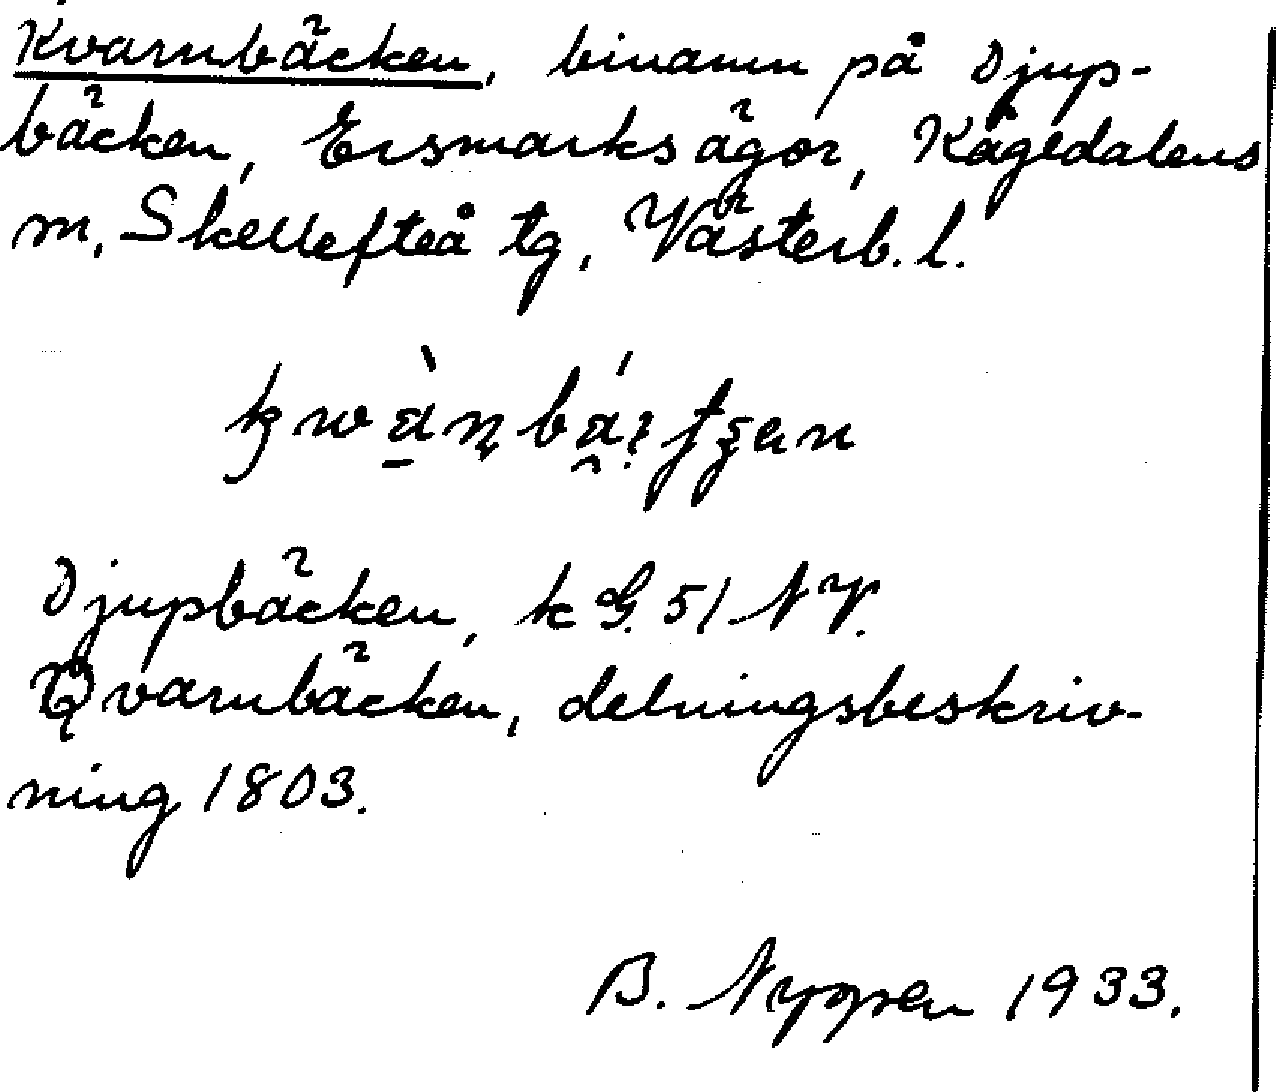 Kvarnbäcken, binamn på Djup-
bäcken, Ersmarks ägor, Kågedalens
m, Skellefteå tg, Västerb. l.
Djupbäcken, k G. 51 NV.
Qvarnbäcken, delningsbeskriv-
ning 1803.
B. 1933.